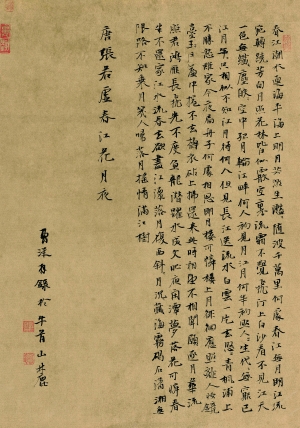 春江潮水連海平海上明月共潮生灩灩隨波千萬里何處春江無月明江流
宛轉繞芳甸月照花林皆似霰空裏流霜不覺飛汀上白沙看不見江天
一色無纖塵皎皎空中孤月輪江畔何人初見月江月何年初照人人生代代無窮已
江月年年只相似不知江月待何人但見長江送流水白雲一片去悠悠青楓浦上
不勝愁誰家今夜扁舟子何處相思明月樓可憐樓上月徘徊應照離人妝鏡
臺玉戶簾中卷不去搗衣砧上拂還來此時相望不相聞願逐月華流
照君鴻雁長飛光不度魚龍潛躍水成文昨夜閒潭夢落花可憐春
半不還家江水流春去欲盡江潭落月復西斜斜月沉沉藏海霧碣石瀟湘無
限路不知乘月幾人歸落月搖情滿江樹
唐張若虛春江花月夜
錄於牛首山林麓